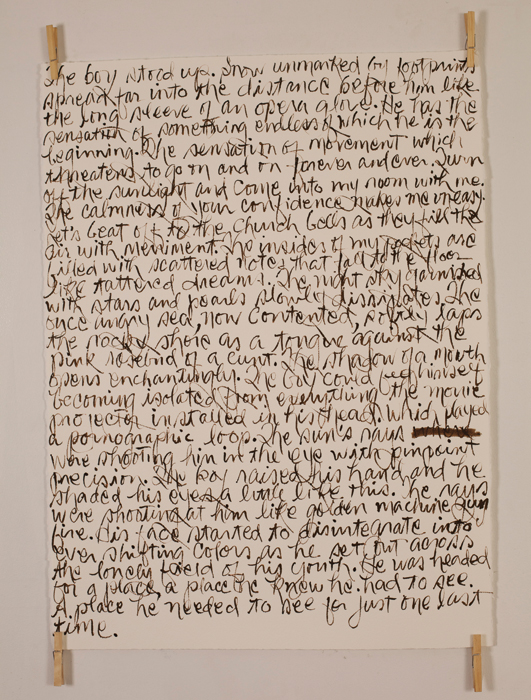 The boy stood up. Snow unmarked by footprints
spread far into the distance before him like
the long sleeve of an opera glove. He has the
sensation of something endless of which he is the
beginning. The sensation of movement which
threatens to go on and on forever and ever. Turn
off the sunlight and come into my room with me.
The calmness of your confidence makes me uneasy.
Let's beat off to the Church bells as they fill the
air with merriment. The insides of my pockets are
filled with scattered notes that fall to the floor
like tattered dreams. The night sky garnished
with stars and pearls slowly dissipates. The
once angry sea, now contented, softly laps
the rocky shore as a tongue against the
pink rosebud of a cunt. The shadow of a mouth
opens enchantingly. The boy could feel himself
becoming isolated from everything the movie
projector installed in his head, which played
a pornographic loop. The sun's rays
were shooting him in the eye with pinpoint
precision. The boy raised his hand and he
shaded his eyes a little like this. The rays
were shooting at him like golden machine gun
fire. His face started to disintegrate into
ever shifting colors as he set out across
the lonely field of his youth. He was headed
for a place, a place he knew he had to see.
A place he needed to see for just one last
time.